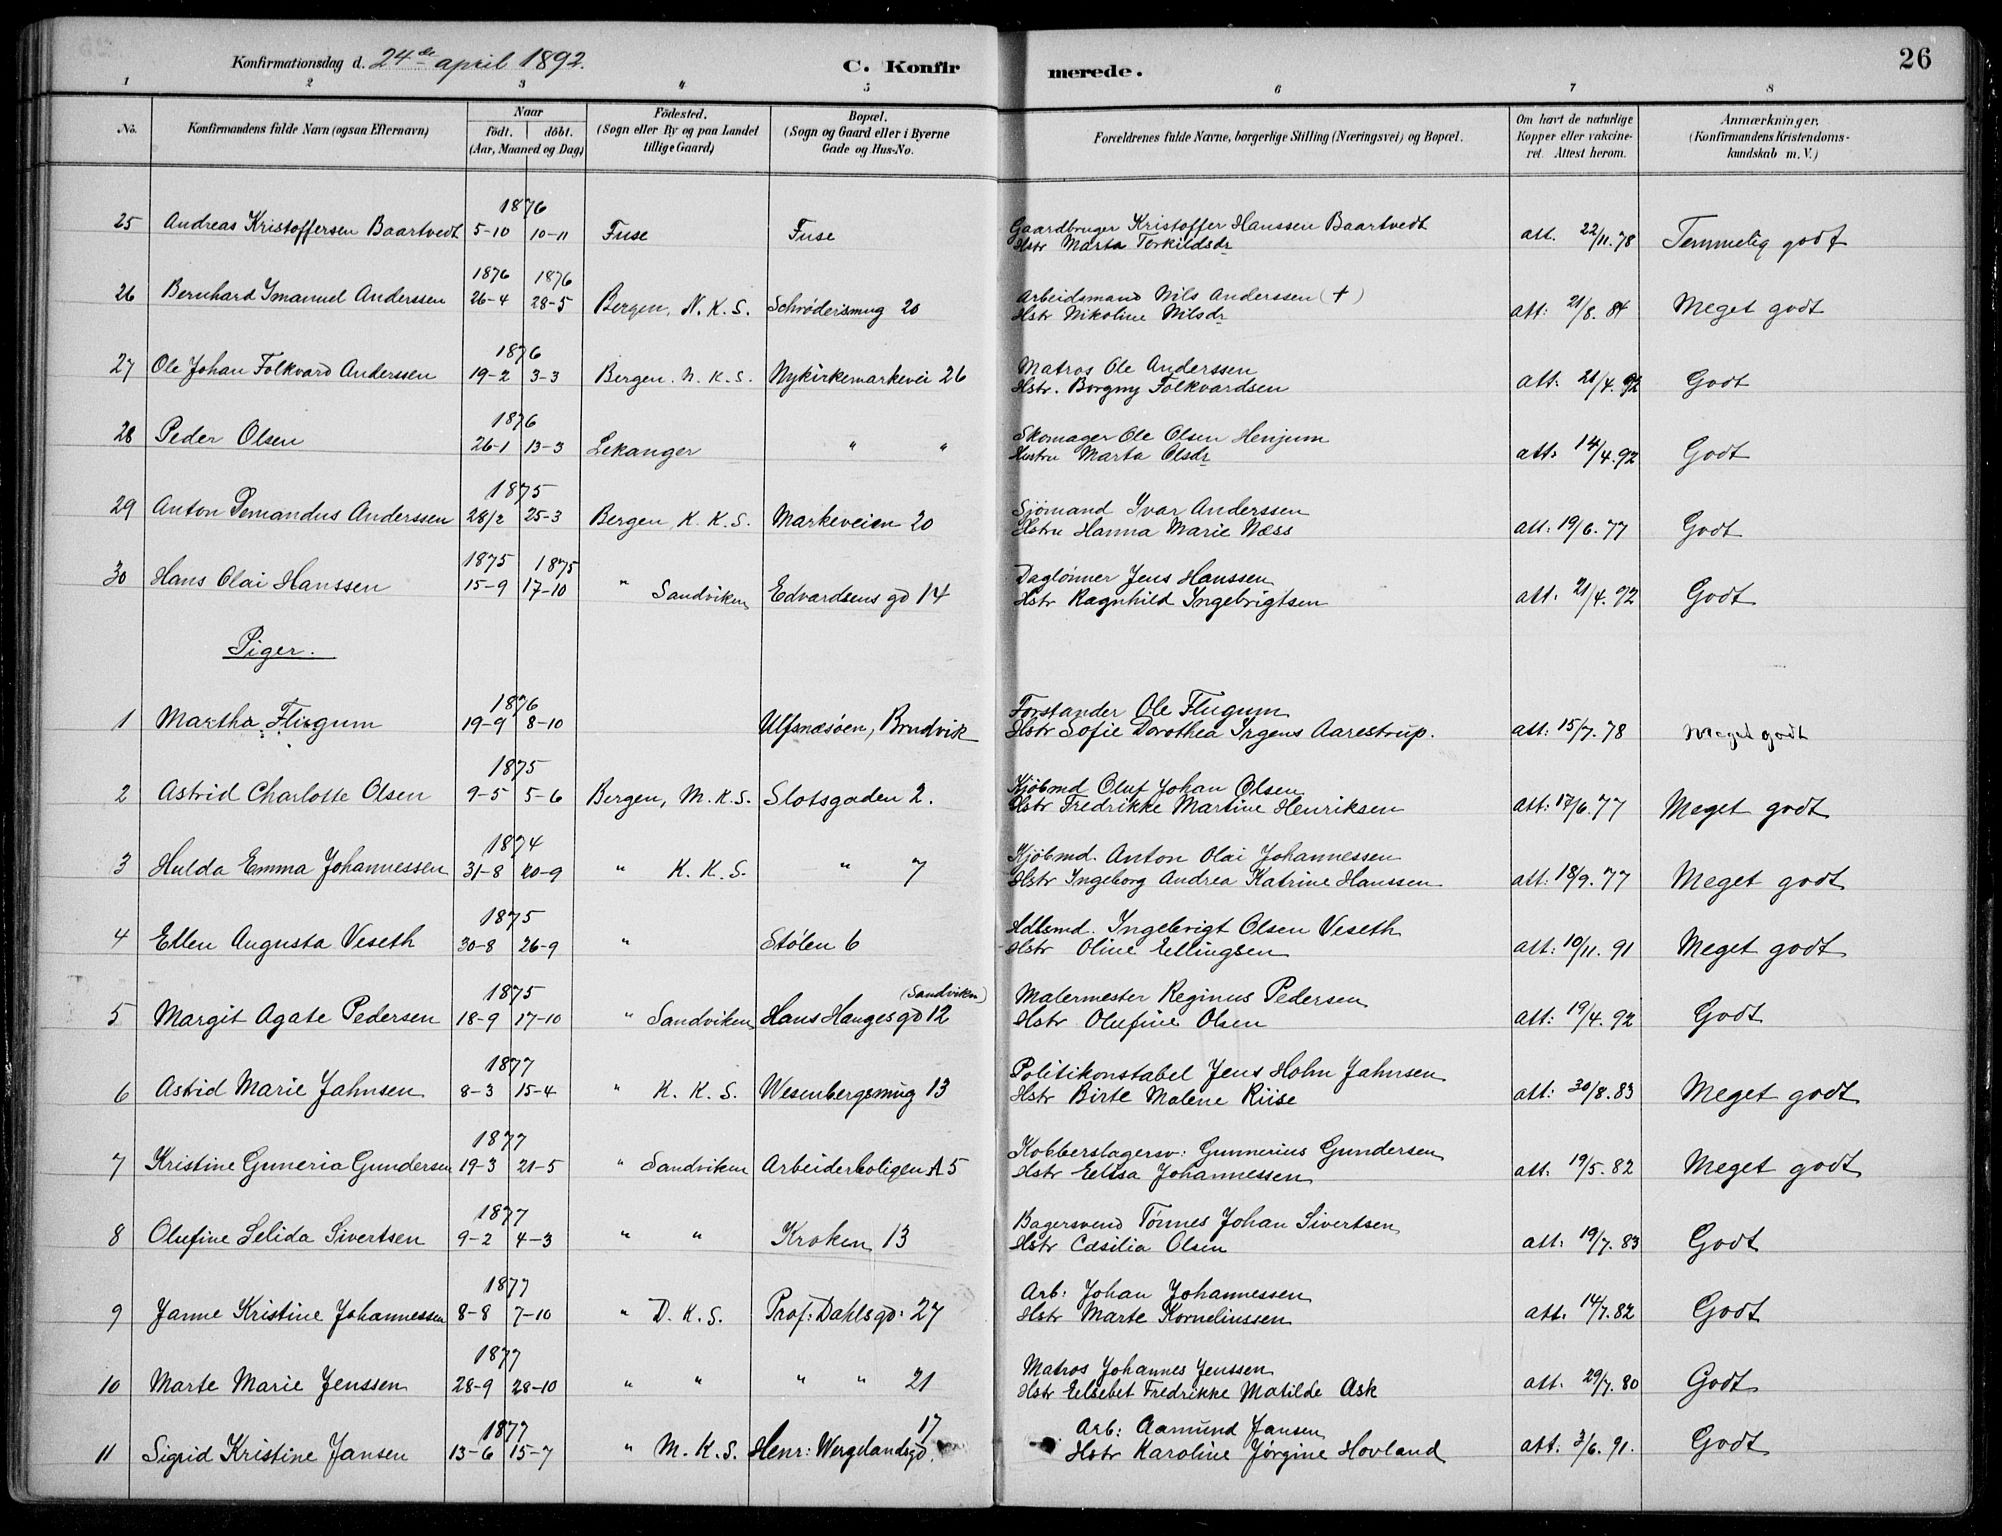 Konfirmationsdag d. 24de april 1892. C. Konfirmerede. 26
1 2 3 4 5 6 7 8
No. Konfirmandens fulde Navn (ogsaa Efternavn) Naar födt. döbt. (Aar, Maaned og Dag) Födested. (Sogn eller By og paa Landet tillige Gaard) Bopæl. (Sogn og Gaard eller i Byerne Gade og Hus-No. Forældrenes fulde Navne, borgerlige Stilling (Næringsvei) og Bopæl. Om havt de naturlige Kopper eller vakcineret. Attest herom. Anmærkninger, (Konfirmandens Kristendomskundskab m. V.)
1876
25 Andreas Kristoffersen Baartvedt 5-10 10-11 Fuse Fuse Gaardbruger Kristoffer Hanssen Baartvedt att. 22/11.78 Temmelig godt
Hstr Marta Torkildsdr
1876 1876
26 Bernhard Imanuel Anderssen 26-4 28-5 Bergen, N. K. S. Schrödersmug 20 Arbeidsmand Nils Anderssen (+) att: 21/8. 84 Meget godt
Hstr Nikoline Nilsdr
1876
27 Ole Johan Folkvard Anderssen 19-2 3-3 Bergen. N. K. S. Nykirkemarkevei 26 Matros Ole Anderssen att: 21/4. 92 Godt
Hstr. Borgny Folkvardsen
1876
28 Peder Olsen 26-1 13-3 Lekanger " " Skomager Ole Olsen Henjum att: 14/4.92 Godt
Hustru Marta Olsdr
1875
29 Anton Femandus Anderssen 28/2 25-3 Bergen, K. K. S. Markeveien 20 Sjömand Ivar Anderssen att: 19/6. 77 Godt
Hstru Hanna Marie Næss
1875 1875
30 Hans Olai Hanssen 15-9 17-10 " Sandviken Edvardsens gd 14 Daglønner Jens Hanssen att. 21/4. 92 Godt
Hstr Ragnhild Ingebrigtsen
Piger.
1876
1 Martha Flugum 19-9 8-10 Ulfsnesøen, Bruvik Forstander Ole Flugum att: 15/7. 78 Meget godt
Hstr Sofie Dorothea Irgens Aarestrup.
1875
2 Astrid Charlotte Olsen 9-5 5-6 Bergen, M. K. S. Slotsgaden 2. Kjöbmd Oluf Johan Olsen att: 17/6. 77 Meget godt
Hstr Fredrikke Martine Henriksen
1874
3 Hulda Emma Johannessen 31-8 20-9 " K. K. S. " 7 Kjöbmd. Anton Olai Johannessen att: 18/9. 77 Meget godt
Hstr Ingeborg Andrea Katrine Hanssen
1875
4 Ellen Augusta Veseth 30-8 26-9 " Stølen 6 Hdlsmd. Ingebrigt Olsen Veseth att: 10/11. 91 Meget godt
Hstr Oline Ellingsen
1875 (Sandviken)
5 Margit Agate Pedersen 18-9 17-10 " Sandviken Hans Hauges gd 12 Malermester Reginus Pedersen att: 19/4. 92 Godt
Hstr Olufine Olsen
1877
6 Astrid Marie Jahnsen 8-3 15-4 " K. K. S. Wesenbergsmug 13 Politikonstabel Jens Holm Jahnsen att: 30/8. 83 Meget godt
Hstr Birte Malene Riise
1877
7 Kristine Guneria Gundersen 19-3 21-5 " Sandviken Arbeiderboligen A 5 Kobberslagersv: Gunnerius Gundersen att. 19/5. 82 Meget godt
Hstr Elisa Johannessen
1877
8 Olufine Selida Sivertsen 9-2 4-3 " " Kroken 13 Bagersvend Tönnes Johan Sivertsen att: 19/7. 83 Godt
Hstr Cæsilia Olsen
1877
9 Janne Kristine Johannessen 8-8 7-10 " D. K. S. Prof: Dahlsgd: 27 Arb: Johan Johannessen att. 14/7.82 Godt
Hstr Marte Korneliussen
1877
10 Marte Marie Jenssen 28-9 28-10 " " " " 21 Matros Johannes Jenssen att. 29/7. 80 Godt
Hstr Elsebet Fredrikke Matilde Ask
1877 17
11 Sigrid Kristine Jansen 13-6 15-7 " M. K. S. Henr: Wergelandsgd. Arb: Aamund Jansen att. 3/6. 91. Godt
Hstr Karoline Jørgine Hovland